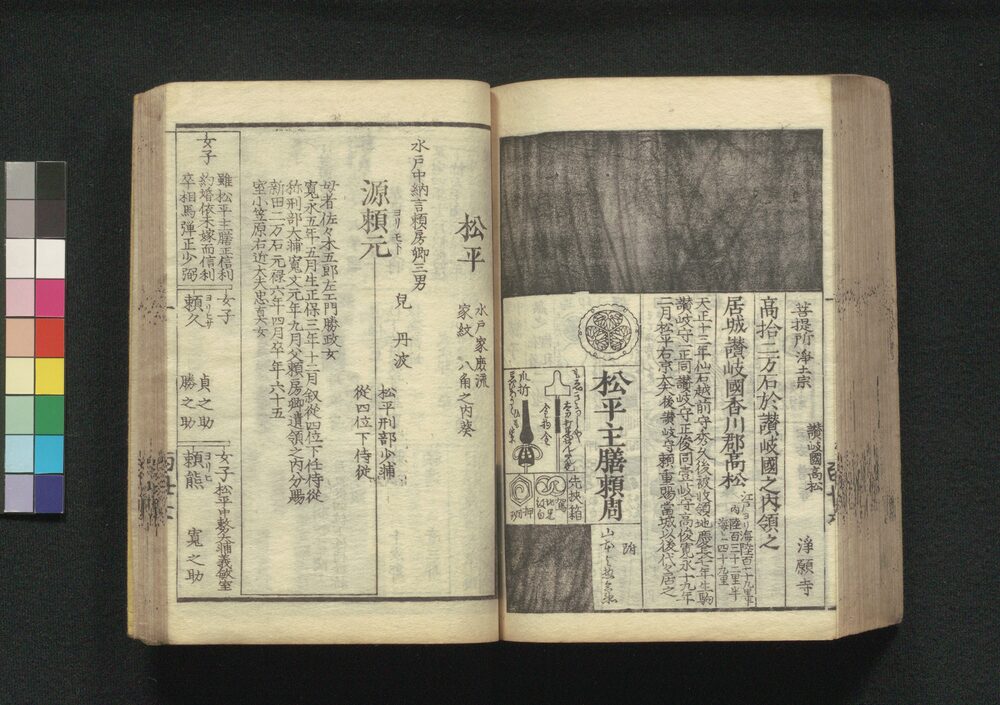 菩提所浄土宗
讃岐國高松 浄願寺
高拾二万石於讃岐國之内領之
居城讃岐國香川郡高松
江戸ヨリ海陸百二十九里半
内 陸百三十二里半
海上四十九里
天正十三年仙石越前守秀久後被收領地慶長七年生駒
讃岐守一正同讃岐守正俊同壹岐守高俊寛永十九年
二月松平右京大夫後讃岐守頼重賜當城以後代々居之
松平主膳頼周
先挾箱
駕
押
爪折
松平
水戸家慶流
家紋 八角之内葵
水戸中納言頼房卿三男
兒 丹波
松平刑部少輔
源頼元
ヨリモト
從四位下侍從
母者佐々木五郎左エ門勝政女
寛永五年五月生正保三年十二月叙從四位下任侍從
称刑部大輔寛文元年九月父頼房卿遺領之内分賜
新田二万石元禄六年四月卒年六十五
室小笠原右近大夫忠真女
女子
雖松平主膳正信利
約婚依未嫁而信利
卒相馬彈正少弼
女子
頼久
ヨリヒサ
貞之助
勝之助
女子
頼熊
寛之助